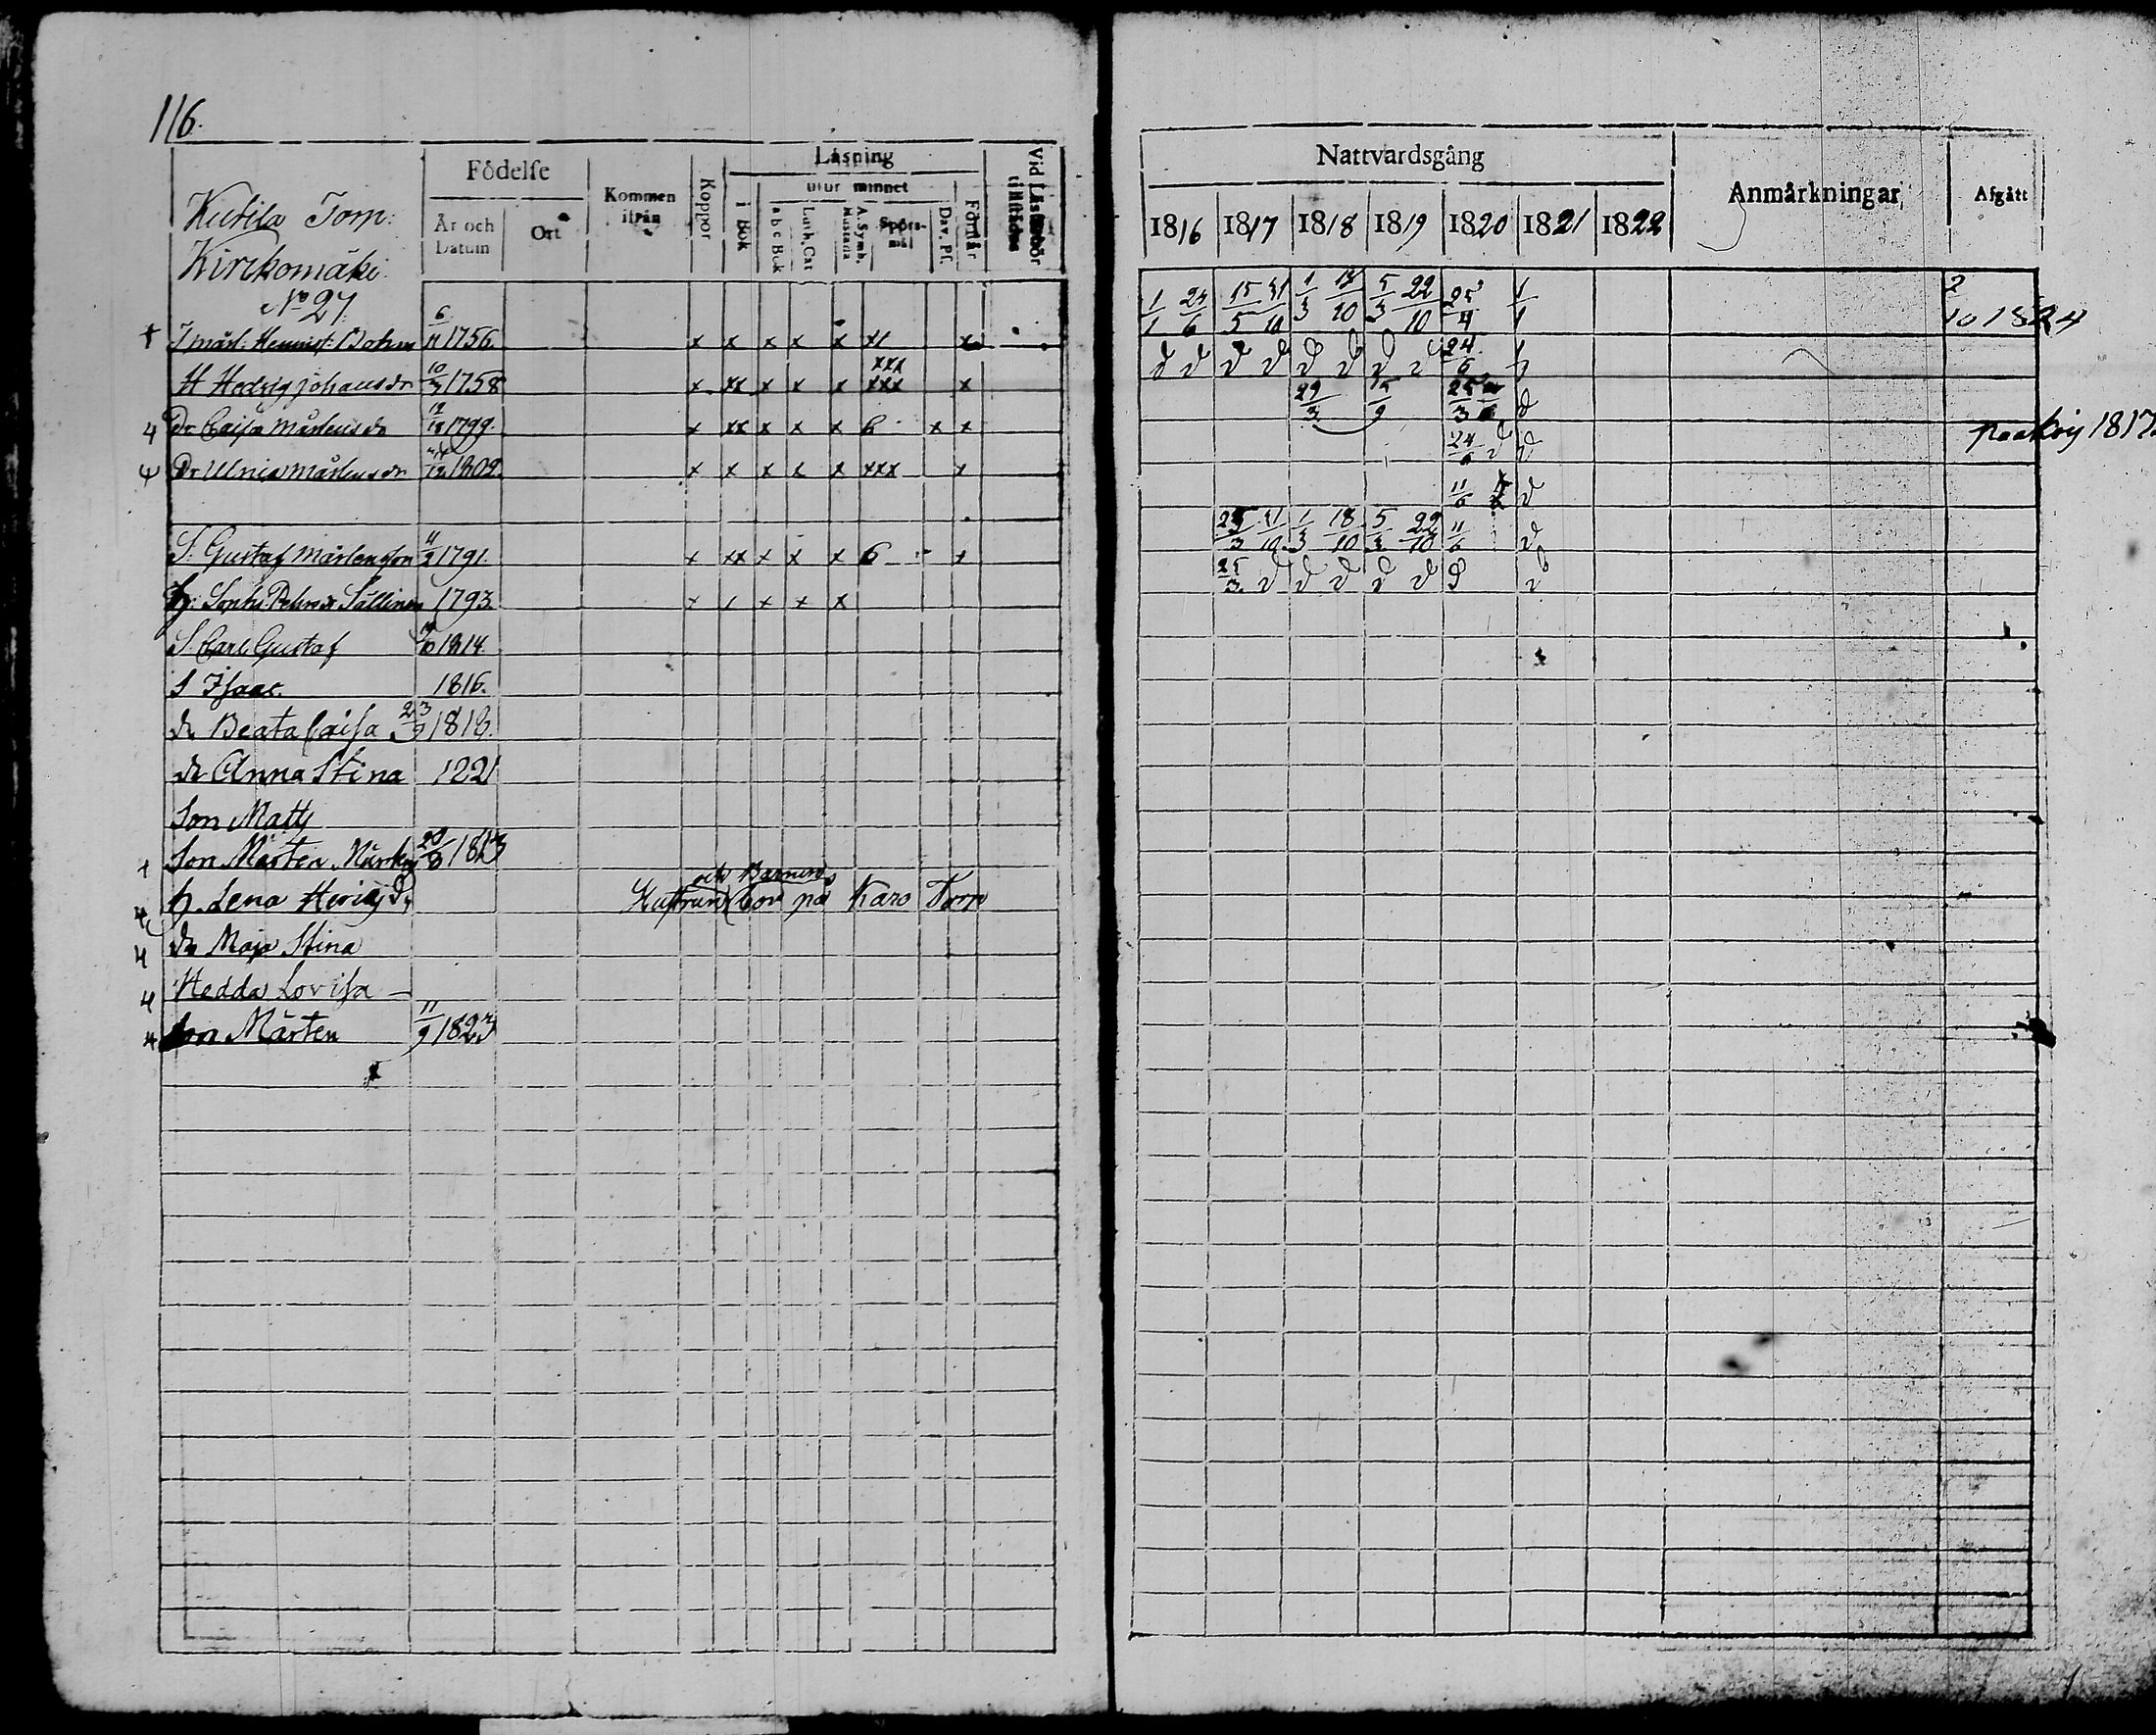 116.
Födelse
Kommen ifrån
Koppor
Läsning
utur minnet
Vid Läseförhör tillstädes
Kutila Torp:
Kirckomäki
No 27
År och Datum
Ort
i Bok
a b c Bok
Luth. Cat
A. Symb. Hustafla
Spörsmål
Dav. Ps.
Förstår
Nattvardsgång
Anmärkningar
Afgått
1816 1817 1818 1819 1820 1821 1822
6/11 1756. x x x x x x1 x
1/1 24/6 15/5 31/10 1/3 18/10 5/3 22/10 25/4 1/1 2/10 1824
H Hedvig Johansdr 10/3 1758 x xx x x x xxx xxx x
24/6
4 Dr Caisa Mårtensdr 12/12 1799. x xx x x x 6 x x
29/3
Dr Ulrica Mårtensdr 1802. x x x x x xxx x
24/6
11/6
S. Gustaf Mårtensson 11/2 1791. x xx x x x 6 x
25/3 31/10 1/3 18/10 5/3 22/10 11/6
Sällinen 1793. x / x x x
25/3
S. Carl Gustaf 1814.
S Isaac. 1816.
dr Beata Caisa 23/9 1818.
dr Anna Stina 1821
Son Matts
Son Mårten
och Barnen
h. Lena Hustrun bor på Karo Torp
4 dr Maja Stina
4 Hedda Lovisa —
4 Son Mårten 11/9 1823